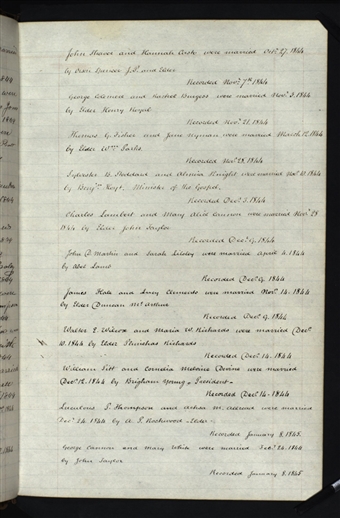 John Shaver and Hannah Cash were married Oct. 27, 1844
by Orson Spencer J.P. and Elder
Recorded Nov. 7th 1844
George Alemed and Rachel Burgess were married Nov. 3, 1844
by Elder Henry
Recorded Nov. 21, 1844
Thomas G. Fisher and Jane Nyman were married March 12, 1844
by Elder Wm. Parks.
Recorded Nov. 28, 1844
Sylvester B. Stoddard and Almira Knight were married Nov. 10, 1844
by Benj. Hoyt, Minister of the Gospel.
Recorded Dec. 5, 1844
Charles Lambert and Mary Alice Cannon were married Nov. 28
1844 by Elder John Taylor
Recorded Dec. 9, 1844
John D. Martin and Sarah were married April 4, 1844
by Abel Lamb
Recorded Dec. 9, 1844
James Hale and Lucy Clements were married Nov. 14, 1844
by Elder Duncan McArthur
Recorded Dec. 9, 1844
Walter E. Wilcox and Maria W. Richards were married Dec.
10, 1844 by Elder Phinehas Richards
Recorded Dec. 14, 1844
William Pitt and Cornelia Melvine Devine were married
Dec. 12, 1844 by Brigham Young - President -
Recorded Dec. 14, 1844
S. Thompson and were married
Dec. 24, 1844 by A. P. Rockwood - Elder -
Recorded January 8, 1845.
George Cannon and Mary White were married Feb. 24, 1844
by John Taylor
Recorded January 8, 1845